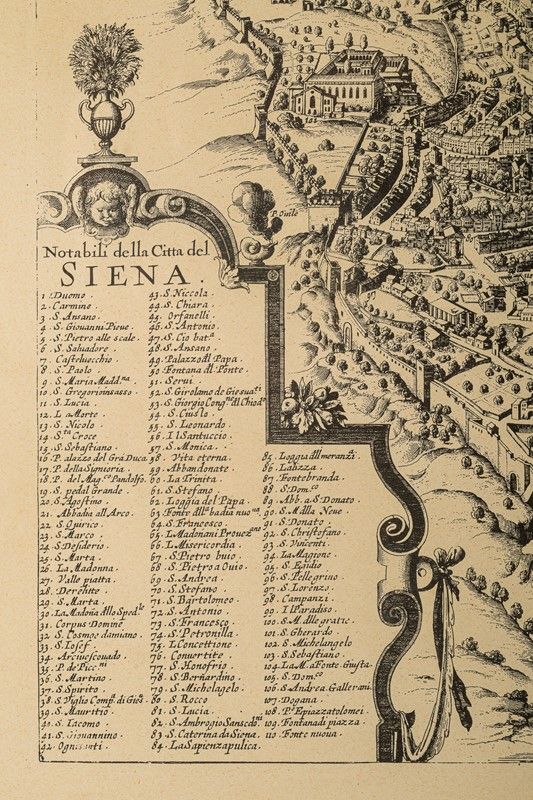 P. Ouile
Notabili della Citta del
SIENA.
1. Duomo.
2. Carmino.
3. S. Ansano.
4. S. Giouanni Pieue.
5. S. Pietro alle scale.
6. S. Saluadore.
7. Castelvecchio
8. S. Paolo
9. S. Maria Madd.na
10. S. Gregorioinsasso.
11. S. Lucia.
12. La Morte.
13. S. Nicolo.
14. S.ta Croce
15. S. Sebastiano.
16. Palazzo del Grā Duca
17. P. della Signoria.
18. P. del Mag.co Pandolfo.
19. S. pedal Grande.
20. S. Agostino.
21. Abbadia all Arco.
22. S. Quirico.
23. S. Marco.
24. S. Desiderio.
25. S. Marta.
26. La Madonna.
27. Valle piatta.
28. Derelitte.
29. S. Marta.
30. La Madoña allo Sped.le
31. Corpus Domine
32. S. Cosmo e damiano.
33. S. Iosef.
34. Arciuescouado.
35. P. de Picc.ni
36. S. Martino.
37. S. Spirito.
38. S. Viglio Comp.a di Gies.
39. S. Mauritio.
40. S. Iacomo.
41. S. Giouannino.
42. Ognisanti.
43. S. Niccola.
44. S. Chiara.
45. Orfanelli.
46. S. Antonio.
47. S. Gio bat.a
48. S. Ansano.
49. Palazzo dl Papa.
50. Fontana dl Ponte.
51. Serui.
52. S. Girolamo de Giesuati
53. S. Giorgio Cong.ne dl Chiodo
54. S. Giusto.
55. S. Leonardo.
56. Il Santuccio.
57. S. Monica.
58. Vita eterna.
59. Abbandonate.
60. La Trinita.
61. S. Stefano.
62. Loggia del Papa.
63. Fonte dlla badia nuoua
64. S. Francesco.
65. La Madonani Prouezano
66. La Misericordia.
67. S. Pietro buio.
68. S. Pietro a Ouio.
69. S. Andrea.
70. S. Stefano.
71. S. Bartolomeo.
72. S. Antonio.
73. S. Francesco.
74. S. Petronilla.
75. I. Concettione.
76. Conuertite.
77. S. Honofrio.
78. S. Bernardino.
79. S. Michelagelo.
80. S. Rocco
81. S. Lucia.
82. S. Ambrogio Sansedo.ni
83. S. Caterina da Siena.
84. La Sapienza pulica.
85. Loggia dll meranzi.
86. La lizza.
87. Fontebranda.
88. S. Dom.co
89. Abb. a S. Donato.
90. S. M dlla Neue.
91. S. Donato.
92. S. Christofano.
93. S. Vincenti.
94. La Magione.
95. S. Egidio
96. S. Pellegrino.
97. S. Lorenzo.
98. Campanzi.
99. Il Paradiso.
100. S. M. dlle gratie.
101. S. Gherardo.
102. S. Michelangelo
103. S. Sebastiano.
104. La M. a Fonte Giusta.
105. S. Dom.co
106. S. Andrea Gallerani.
107. Dogana.
108. P.a Epiazzatolomei.
109. Fontana di piazza.
110. Fonte nuoua.